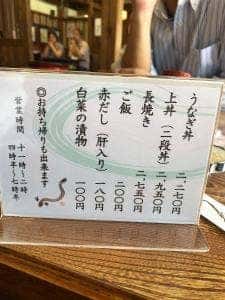 うなぎ丼 二、二七〇円
上丼(二段丼) 二、九五〇円
長焼き 二、七五〇円
ご飯 二〇〇円
赤だし(肝入り) 一八〇円
白菜の漬物 一〇〇円
◎お持ち帰りも出来ます
営業時間 十一時〜二時
四時半〜七時半